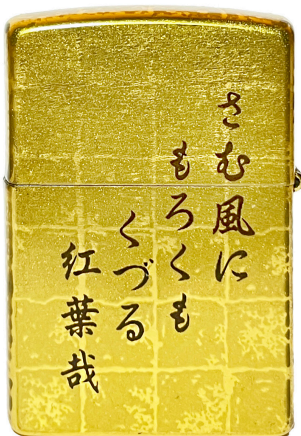 さむ風に
もろくも
くづる
紅葉哉